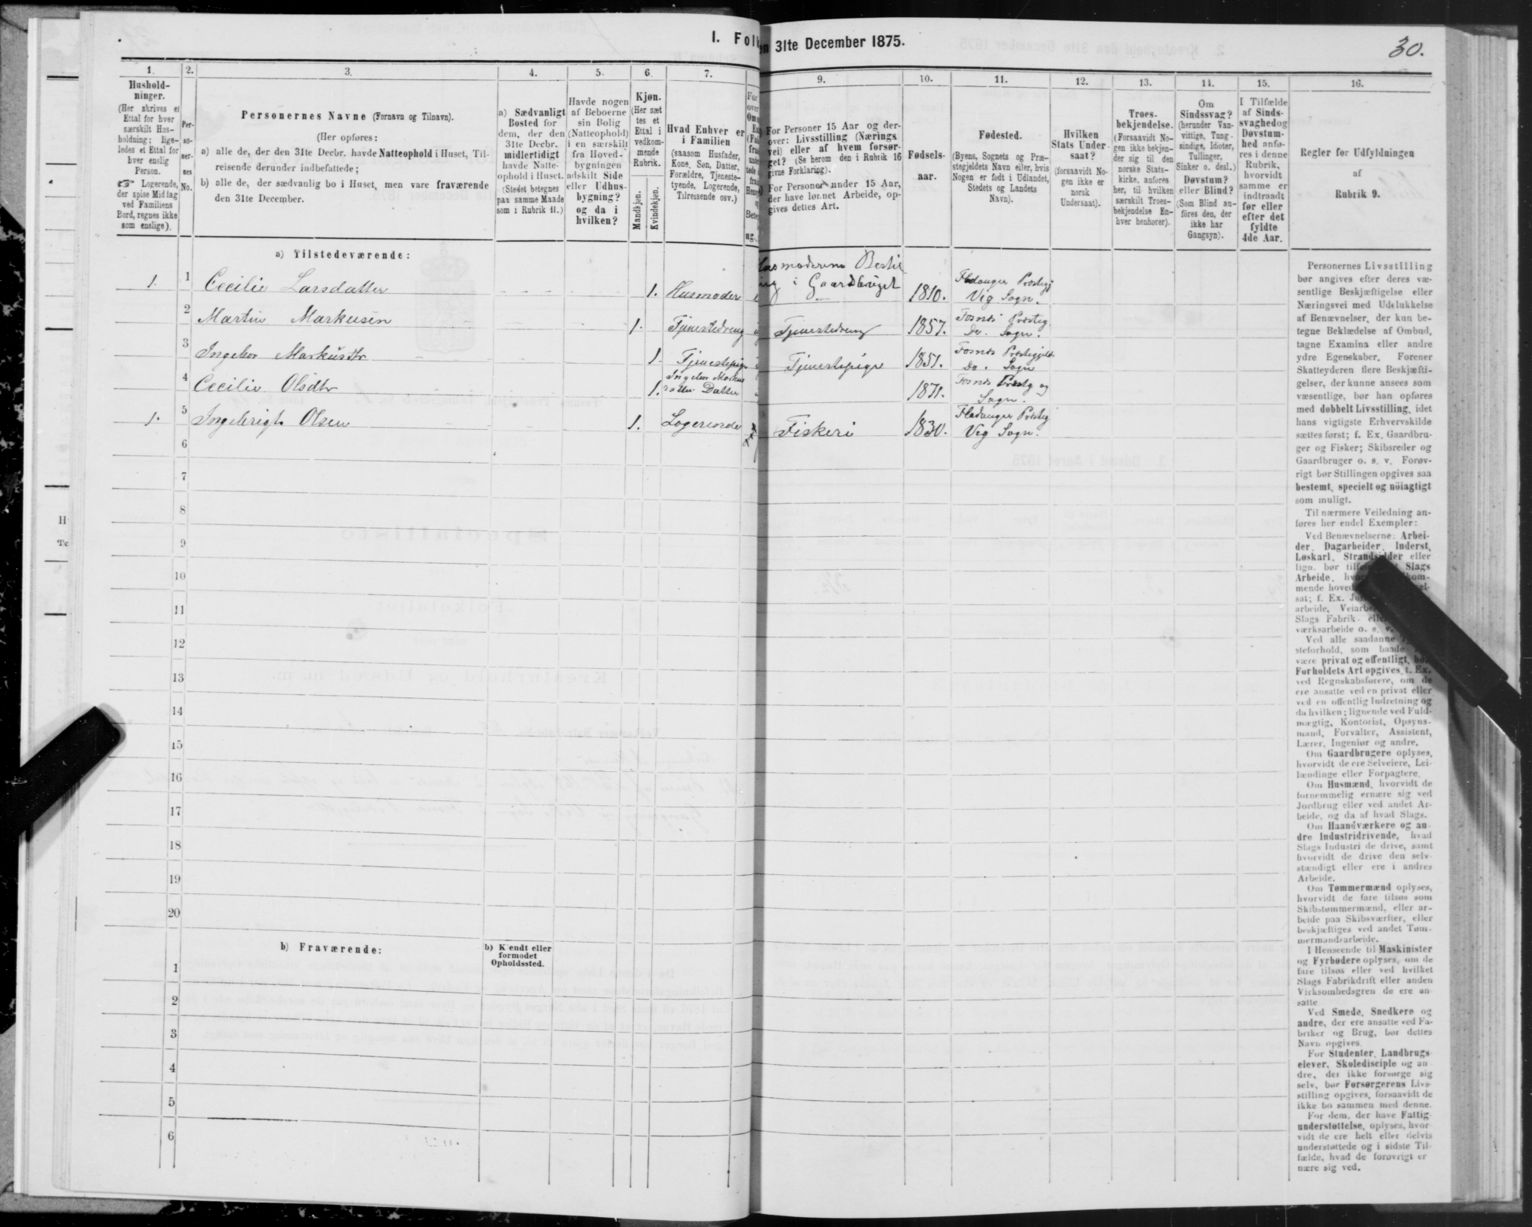 I. Fol
n 31te December 1875.
30.
1.
2.
3.
4.
5.
6.
7.
9.
10.
11.
12.
13.
14.
15.
16.
Hushold-
ninger.
(Her skrives et
Ettal for hver
særskilt Hus-
holdning; lige-
ledes et Ettal for
hver enslig
Person.
☞ Logerende,
der spise Middag
ved Familiens
Bord, regnes ikke
som enslige).
Per-
so-
ner-
nes
No.
Personernes Navne (Fornavn og Tilnavn).
(Her opføres:
a) alle de, der den 31te Decbr. havde Natteophold i Huset, Til-
reisende derunder indbefattede;
b) alle de, der sædvanlig bo i Huset, men vare fraværende
den 31te December.
a) Sædvanligt
Bosted for
dem, der den
31te Decbr.
midlertidigt
havde Natte-
ophold i Huset.
(Stedet betegnes
paa samme Maade
som i Rubrik 11.)
Havde nogen
af Beboerne
sin Bolig
(Natteophold)
i en særskilt
fra Hoved-
bygningen
adskilt Side
eller Udhus-
bygning?
og da i
hvilken?
Kjøn.
(Her sæt-
tes et
Ettal i
vedkom-
mende
Rubrik.
Mandkjøn.
Kvindekjøn.
Hvad Enhver er
i Familien
(saasom Husfader,
Kone, Søn, Datter,
Forældre, Tjeneste-
tyende, Logerende,
Tilreisende osv.)
For Personer 15 Aar og der-
over: Livsstilling (Nærings-
vei) eller af hvem forsør-
get? (Se herom den i Rubrik 16
givne Forklaring).
For Personer under 15 Aar,
der have lønnet Arbeide, op-
gives dettes Art.
Fødsels-
aar.
Fødested.
(Byens, Sognets og Præ-
stegjeldets Navn eller, hvis
Nogen er født i Udlandet,
Stedets og Landets
Navn).
Hvilken
Stats Under-
saat?
(forsaavidt No-
gen ikke er
norsk
Undersaat).
Troes-
bekjendelse.
(Forsaavidt No-
gen ikke bekjen-
der sig til den
norske Stats-
kirke, anføres
her, til hvilken
særskilt Troes-
bekjendelse En-
hver henhører).
Om
Sindssvag?
(herunder Van-
vittige, Tung-
sindige, Idioter,
Tullinger,
Sinker o. desl.)
Døvstum?
eller Blind?
(Som Blind an-
føres den, der
ikke har
Gangsyn).
I Tilfælde
af Sinds-
svaghed og
Døvstum-
hed anfø-
res i denne
Rubrik,
hvorvidt
samme er
indtraadt
før eller
efter det
fyldte
4de Aar.
Regler for Udfyldningen
af
Rubrik 9.
a) Tilstedeværende:
1. 1 Cecilie Larsdatter 1. Husmoder moderens Besti i Gaardbruget 1810. Fladanger Præstegj Vig Sogn.
2 Martin Markusen 1. Tjenestedreng Tjenestedreng 1857. Fosnes Præsteg Do. Sogn.
3 Ingebor Markusdtr 1. Tjenestepige Tjenestepige 1851. Fosnes Præstegjeld Do. Sogn
4 Cecilie Olsdtr 1. Ingebor Markus datter Datter 1871. Fosnes Præstg og Sogn.
1. 5 Ingebrigt Olsen 1. Logerende Fiskeri 1830. Fladanger Præsteg Vig Sogn.
6
7
8
9
10
11
12
13
14
15
16
17
18
19
20
b) Fraværende:
b) Kjendt eller
formodet
Opholdssted.
1
2
3
4
5
6
Personernes Livsstilling
bør angives efter deres væ-
sentlige Beskjæftigelse eller
Næringsvei med Udelukkelse
af Benævnelser, der kun be-
tegne Beklædelse af Ombud,
tagne Examina eller andre
ydre Egenskaber. Forener
Skatteyderen flere Beskjæfti-
gelser, der kunne ansees som
væsentlige, bør han opføres
med dobbelt Livsstilling, idet
hans vigtigste Erhvervskilde
sættes først; f. Ex. Gaardbru-
ger og Fisker; Skibsreder og
Gaardbruger o. s. v. Forøv-
rigt bør Stillingen opgives saa
bestemt, specielt og nøiagtigt
som muligt.
Til nærmere Veiledning an-
føres her endel Exempler:
Ved Benævnelserne: Arbei-
der, Dagarbeider, Inderst,
Løskarl, Strandsidder eller
lign. bør Slags
Arbeide,
mende
sat; f. Ex.
arbeide, Veiarbe
Slags Fabrik- elle
værksarbeide o. s. v.
Ved alle saadanne
steforhold, som baade
være privat og offentligt, bør
Forholdets Art opgives, f. Ex.
ved Regnskabsførere, om de
ere ansatte ved en privat eller
ved en offentlig Indretning og
da hvilken; lignende ved Fuld-
mægtig, Kontorist, Opsyns-
mand, Forvalter, Assistent,
Lærer, Ingeniør og andre.
Om Gaardbrugere oplyses,
hvorvidt de ere Selveiere, Lei-
lændinge eller Forpagtere.
Om Husmænd, hvorvidt de
fornemmelig ernære sig ved
Jordbrug eller ved andet Ar-
beide, og da af hvad Slags.
Om Haandværkere og an-
dre Industridrivende, hvad
Slags Industri de drive, samt
hvorvidt de drive den selv-
stændigt eller ere i andres
Arbeide.
Om Tømmermænd oplyses,
hvorvidt de fare tilsøs som
Skibstømmermænd, eller ar-
beide paa Skibsværfter, eller
beskjæftiges ved andet Tøm-
mermandsarbeide.
I Henseende til Maskinister
og Fyrbødere oplyses, om de
fare tilsøs eller ved hvilket
Slags Fabrikdrift eller anden
Virksomhedsgren de ere an-
satte
Ved Smede, Snedkere og
andre, der ere ansatte ved Fa-
briker og Brug, bør dettes
Navn opgives.
For Studenter, Landbrugs-
elever, Skoledisciple og an-
dre, der ikke forsørge sig
selv, bør Forsørgerens Livs-
stilling opgives, forsaavidt de
ikke bo sammen med denne.
For dem, der have Fattig-
understøttelse, oplyses, hvor-
vidt de ere helt eller delvis
understøttede og i sidste Til-
fælde, hvad de forøvrigt er-
nære sig ved.